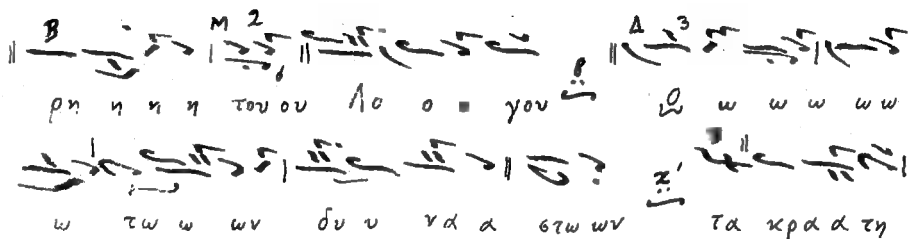 ρη η η η του ου Λο ο γου Ω ω ω ω ω ω
ω τω ω ων δυ υ να α στω ων τα κρα α τη